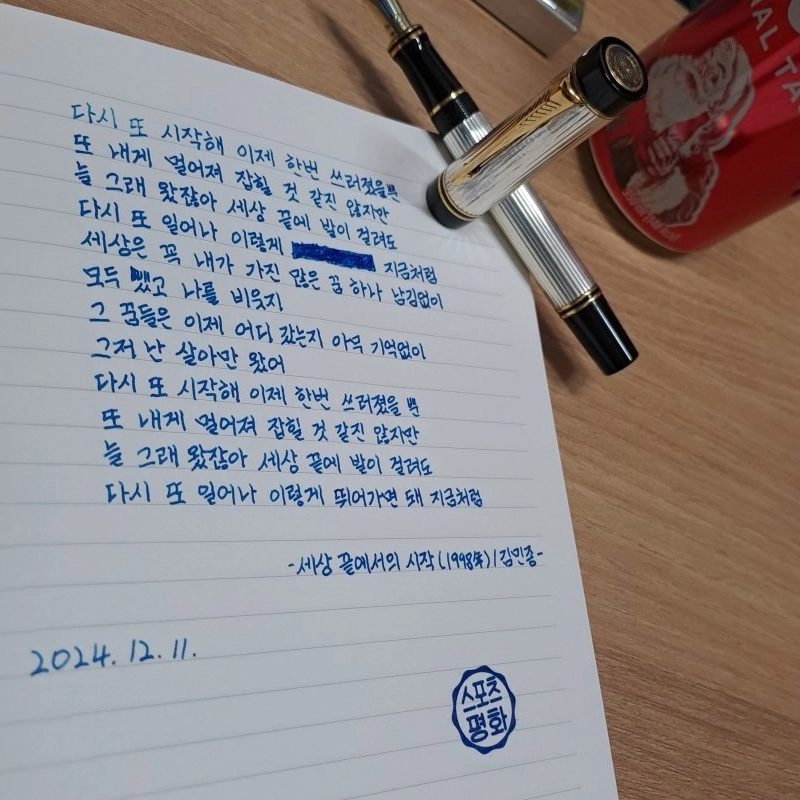 다시 또 시작해 이제 한번 쓰러졌을뿐
또 내게 멀어져 잡힐 것 같진 않지만
늘 그래 왔잖아 세상 끝에 발이 걸려도
다시 또 일어나 이렇게 지금처럼
세상은 꼭 내가 가진 많은 꿈 하나 남김없이
모두 뺐고 나를 비웃지
그 꿈들은 이제 어디 갔는지 아무 기억없이
그저 난 살아만 왔어
다시 또 시작해 이제 한번 쓰러졌을 뿐
또 내게 멀어져 잡힐 것 같진 않지만
늘 그래 왔잖아 세상 끝에 발이 걸려도
다시 또 일어나 이렇게 뛰어가면 돼 지금처럼
-세상 끝에서의 시작(1998年)/김민종-
2024. 12. 11.
스포츠
평화
NAL TA